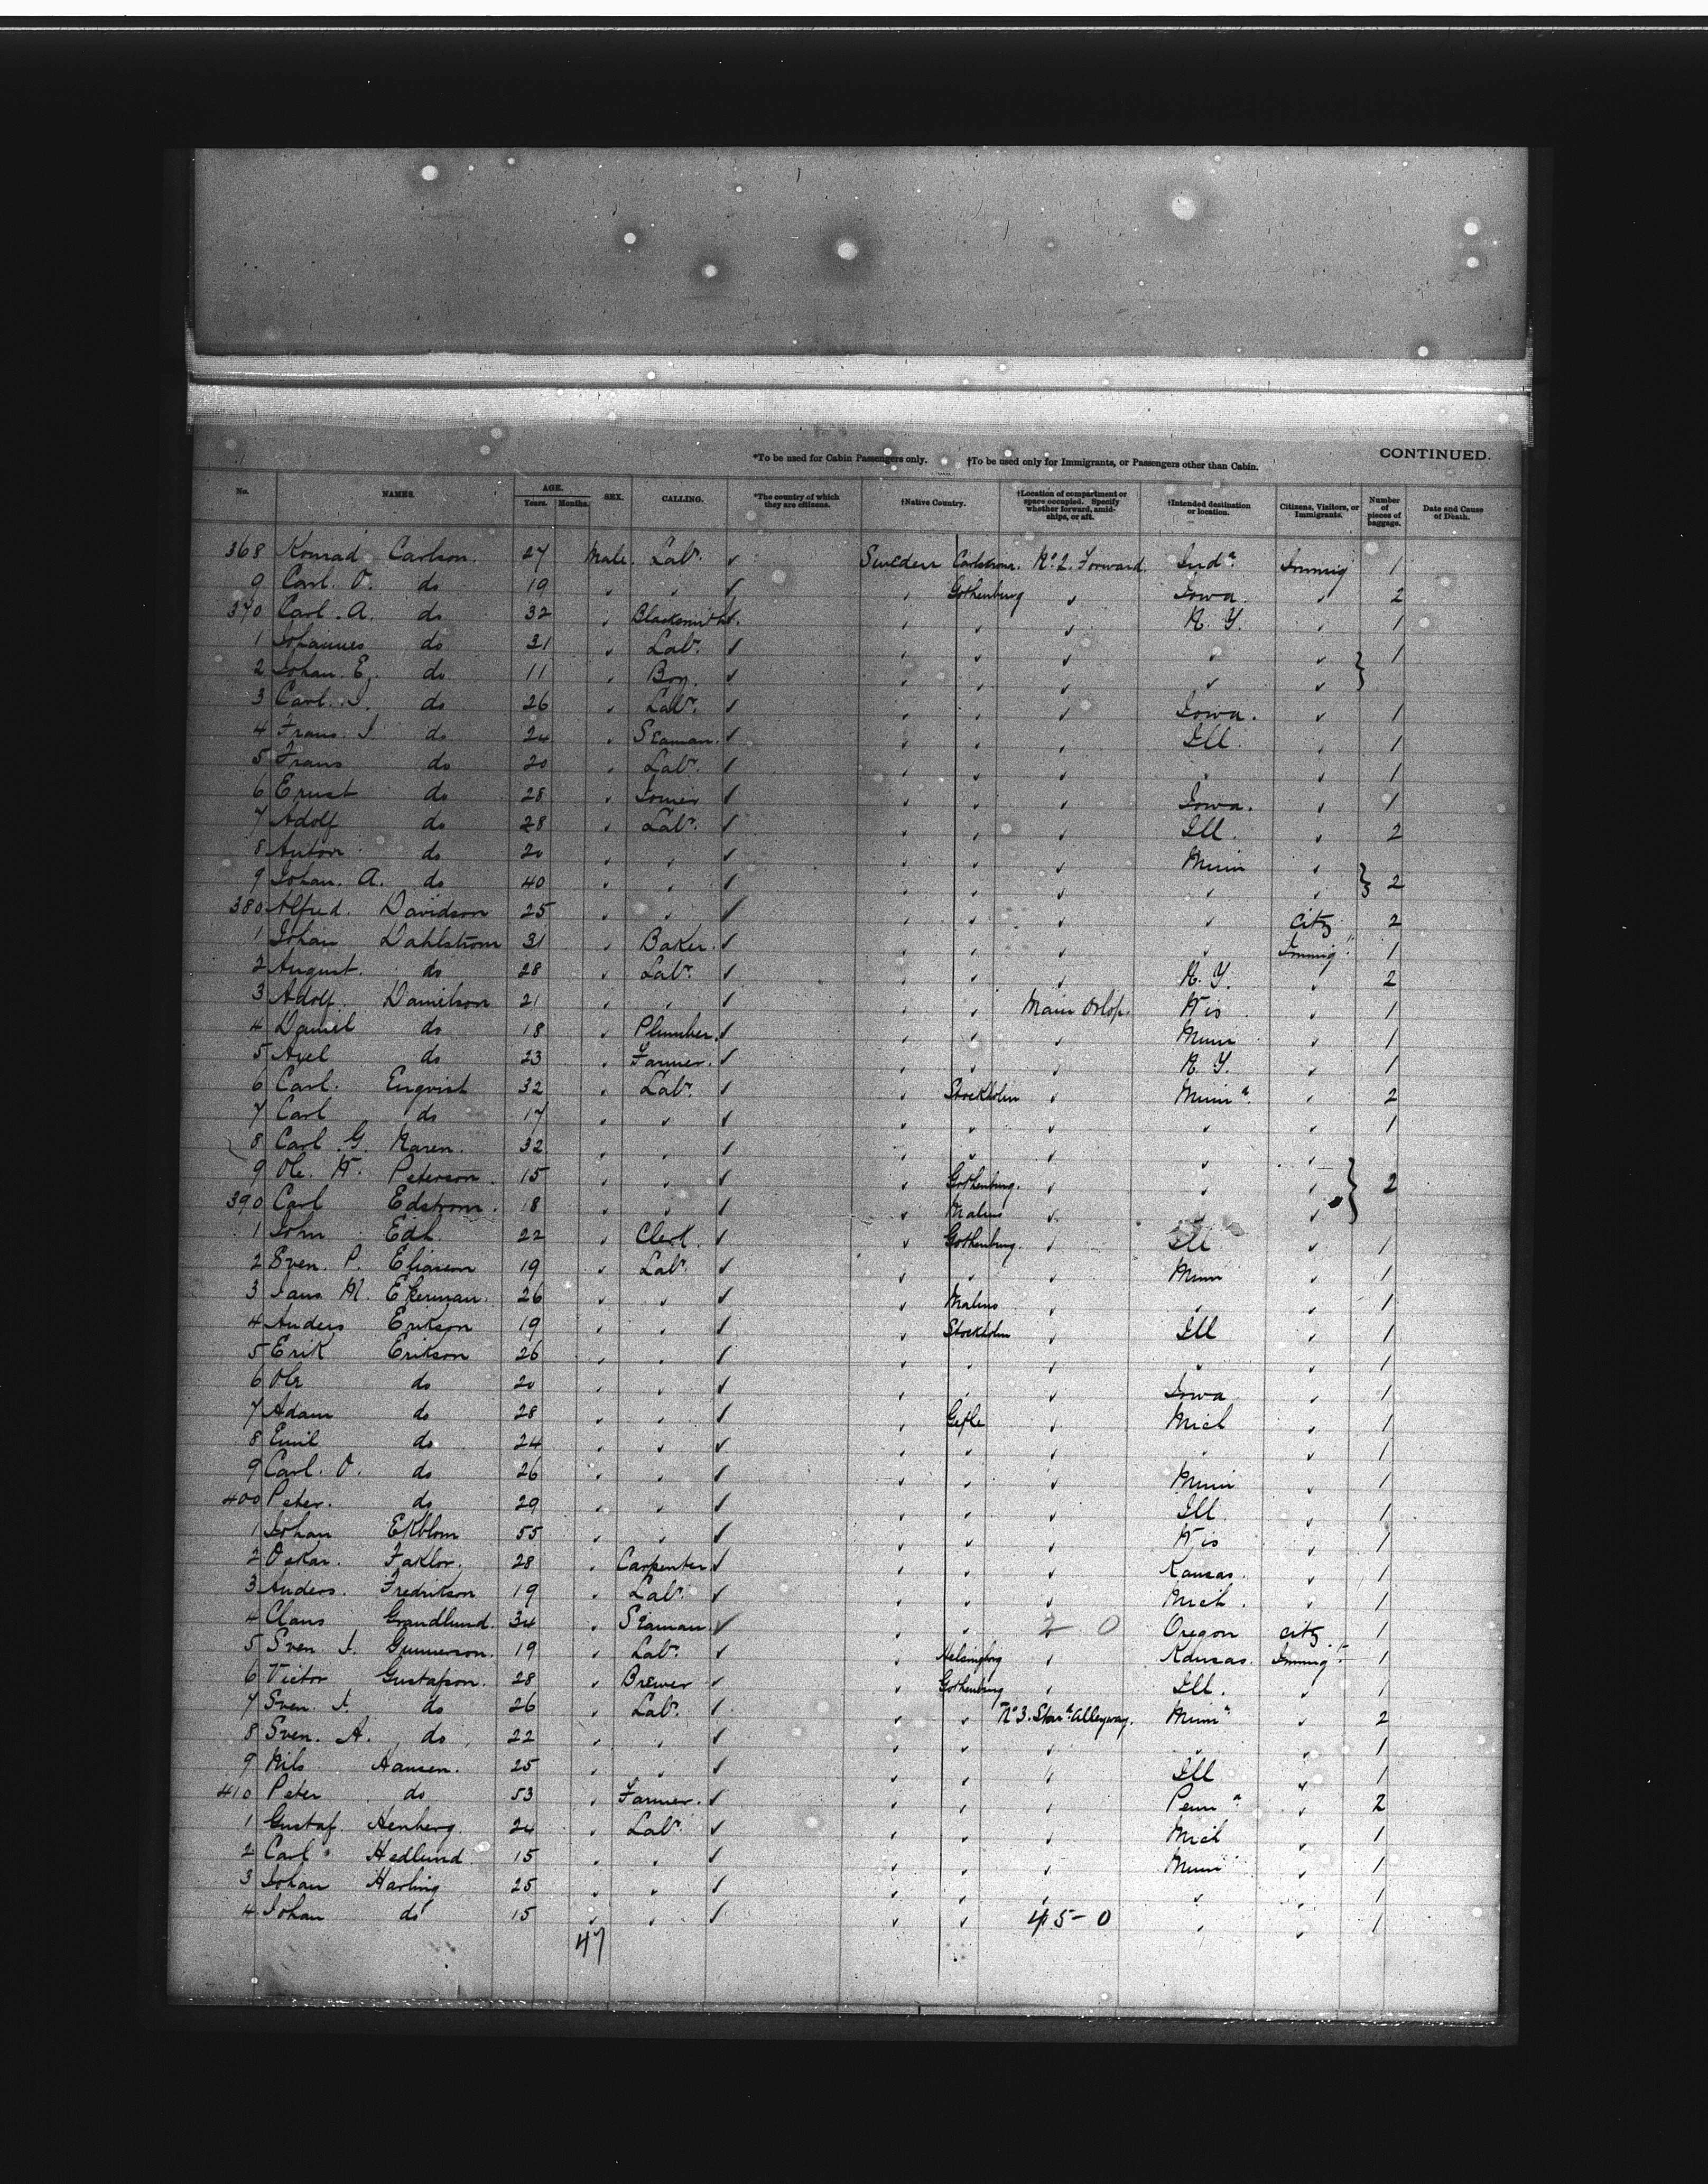 CONTINUED.
*To be used for Cabin Passengers only. †To be used only for Immigrants, or Passengers other than Cabin.
No. NAMES. AGE. Years. Months. SEX. CALLING. *The country of which they are citizens. †Native Country. †Location of compartment or space occupied. Specify whether forward, amidships, or aft. †Intended destination or location. Citizens, Visitors, or Immigrants. Number of pieces of baggage. Date and Cause of Death.
368 Konrad Carlson 27 Male Labr. ✓ Sweden Carlstrona. No. 2. Forward. Inda Immig 1
9 Carl. O. do 19 " " ✓ " Gothenburg " Iowa " 2
370 Carl. A. do 32 " Blacksmith ✓ " " " N.Y. " 1
1 Johannes do 31 " Labr. ✓ " " " " " 1
2 Johan. E. do 11 " Boy. ✓ " " " " " }
3 Carl. J. do 26 " Labr. ✓ " " " Iowa. " 1
4 Frans. J do 24 " Seaman. ✓ " " " Ill. " 1
5 Frans do 20 " Labr. ✓ " " " " " 1
6 Ernst do 28 " Joiner ✓ " " " Iowa. " 1
7 Adolf do 28 " Labr. ✓ " " " Ill. " 2
8 Anton do 20 " " ✓ " " " Minn "
9 Johan. A. do 40 " " ✓ " " " " " } 2
380 Alfred. Davidson 25 " " ✓ " " " " Citz 2
1 Johan Dahlstrom 31 " Baker. ✓ " " " " Immig. 1
2 August. do 28 " Labr. ✓ " " " N.Y. " 2
3 Adolf. Danielson 21 " " ✓ " " Main Orlop. Wis " 1
4 Daniel do 18 " Plumber. ✓ " " " Minn " 1
5 Axel do 23 " Farmer. ✓ " " " N.Y. " 1
6 Carl. Enqvist 32 " Labr. ✓ " Stockholm " Minna. " 2
7 Carl do 17 " " ✓ " " " " " 1
8 Carl G. Maren. 32 " " ✓ " " " " "
9 Ole. W. Peterson. 15 " " ✓ " Gothenburg. " " " } 2
390 Carl Edstrom. 18 " " ✓ " Malmo " "
1 John Edh. 22 " Clerk. ✓ " Gothenburg. " Ill " 1
2 Sven. P. Eliason 19 " Labr. ✓ " " " Minn " 1
3 Jans M. Ekerman. 26 " " ✓ " Malmo " " " 1
4 Anders Erikson 19 " " ✓ " Stockholm " Ill " 1
5 Erik Erikson 26 " " ✓ " " " " " 1
6 Ole do 20 " " ✓ " " " Iowa " 1
7 Adam do 28 " " ✓ " Gefle " Mich " 1
8 Emil do 24 " " ✓ " " " " " 1
9 Carl. O. do 26 " " ✓ " " " Minn " 1
400 Peter. do 29 " " ✓ " " " Ill. " 1
1 Johan Ekblom 55 " " ✓ " " " Wis " 1
2 Oskar. Faklor. 28 " Carpenter ✓ " " " Kansas. " 1
3 Anders. Fredrikson 19 " Labr. ✓ " " " Mich. " 1
4 Claus Grandlund. 34 " Seaman. ✓ " " 2 0 Oregon Citz. 1
5 Sven J. Gunnerson. 19 " Labr. ✓ " Helsingborg " Kansas. Immigt. 1
6 Victor Gustafson. 28 " Brewer ✓ " Gothenburg " Ill. " 1
7 Sven. J. do 26 " Labr. ✓ " " No 3. Starn. Alleyway. Minna " 2
8 Sven. A. do 22 " " ✓ " " " " " 1
9 Nils Hansen. 25 " " ✓ " " " Ill " 1
410 Peter do 53 " Farmer. ✓ " " " Penna " 2
1 Gustaf. Henberg. 24 " Labr. ✓ " " " Mich " 1
2 Carl Hedlund 15 " " ✓ " " " Minn " 1
3 Johan Harling 25 " " ✓ " " " " " 1
4 Johan do 15 " " ✓ " " 45-0 " " 1
47